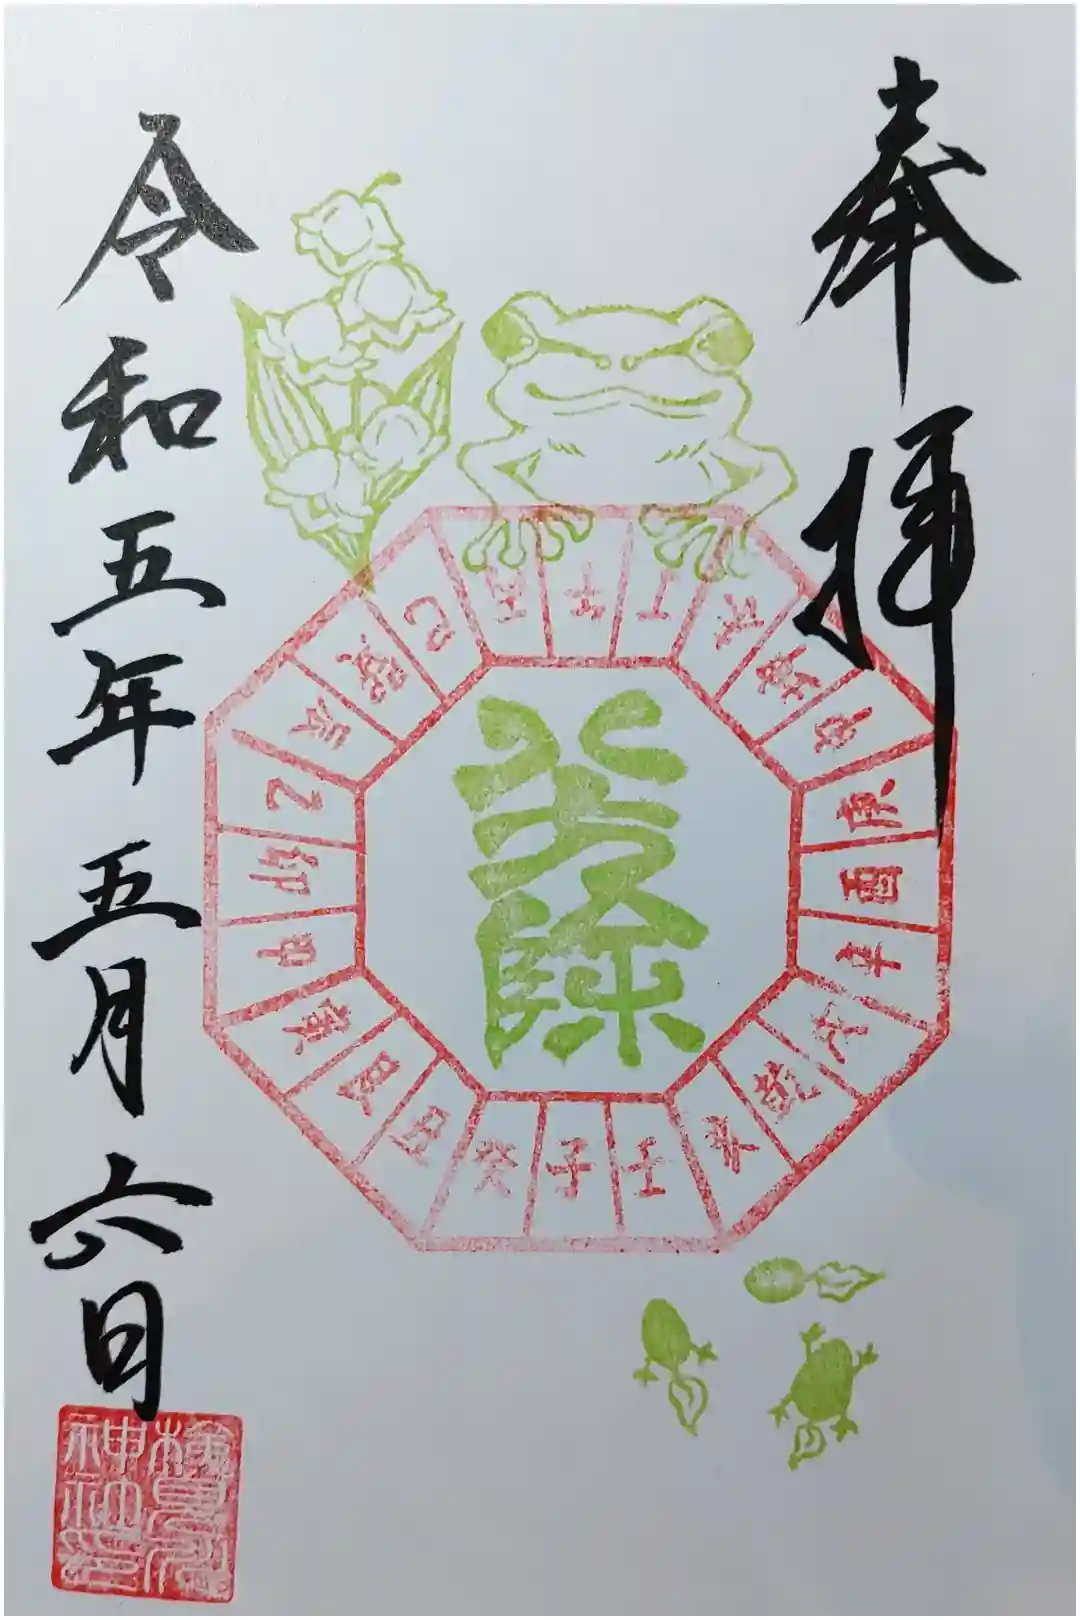 奉拝
八方除
子癸丑艮寅甲卯乙辰巽巳丙午丁未坤申庚酉辛戌乾亥壬
令和五年五月六日